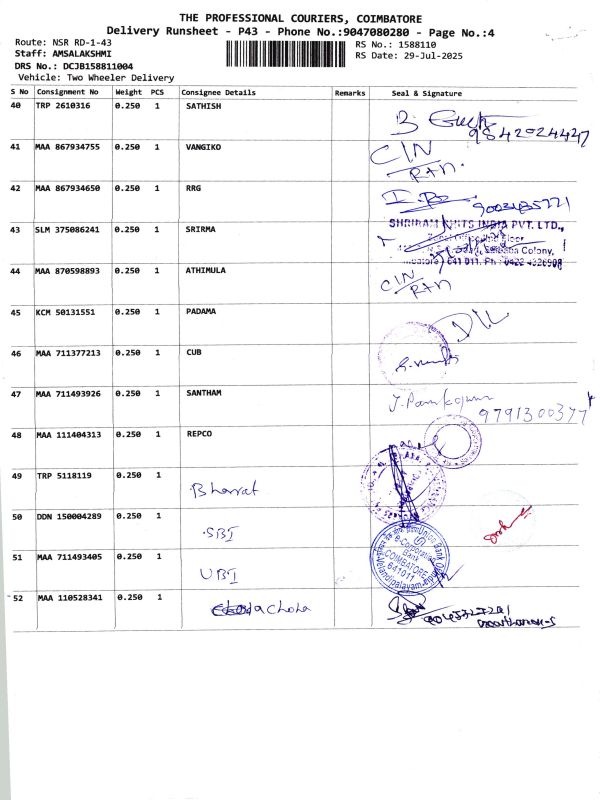 THE PROFESSIONAL COURIERS, COIMBATORE
Delivery Runsheet - P43 - Phone No.:9047080280 - Page No.:4
Route: NSR RD-1-43
RS No.: 1588110
Staff: AMSALAKSHMI
RS Date: 29-Jul-2025
DRS No.: DCJB158811004
Vehicle: Two Wheeler Delivery
S No Consignment No Weight PCS Consignee Details Remarks Seal & Signature
40 TRP 2610316 0.250 1 SATHISH
9842024427
41 MAA 867934755 0.250 1 VANGIKO
C/N
RTN
42 MAA 867934650 0.250 1 RRG
43 SLM 375086241 0.250 1 SRIRMA
SHRIRAM KNITS INDIA PVT. LTD.,
Colony,
641 011. Ph: 0422
44 MAA 870598893 0.250 1 ATHIMULA
C/N
RTN
45 KCM 50131551 0.250 1 PADAMA
46 MAA 711377213 0.250 1 CUB
47 MAA 711493926 0.250 1 SANTHAM
9791300377
48 MAA 111404313 0.250 1 REPCO
49 TRP 5118119 0.250 1 Bharat
50 DDN 150004289 0.250 1 SBI
51 MAA 711493405 0.250 1 UBI
Union Bank
e-Corporation
Bank
COIMBATORE
641011
Velandipalayam
52 MAA 110528341 0.250 1 Chola